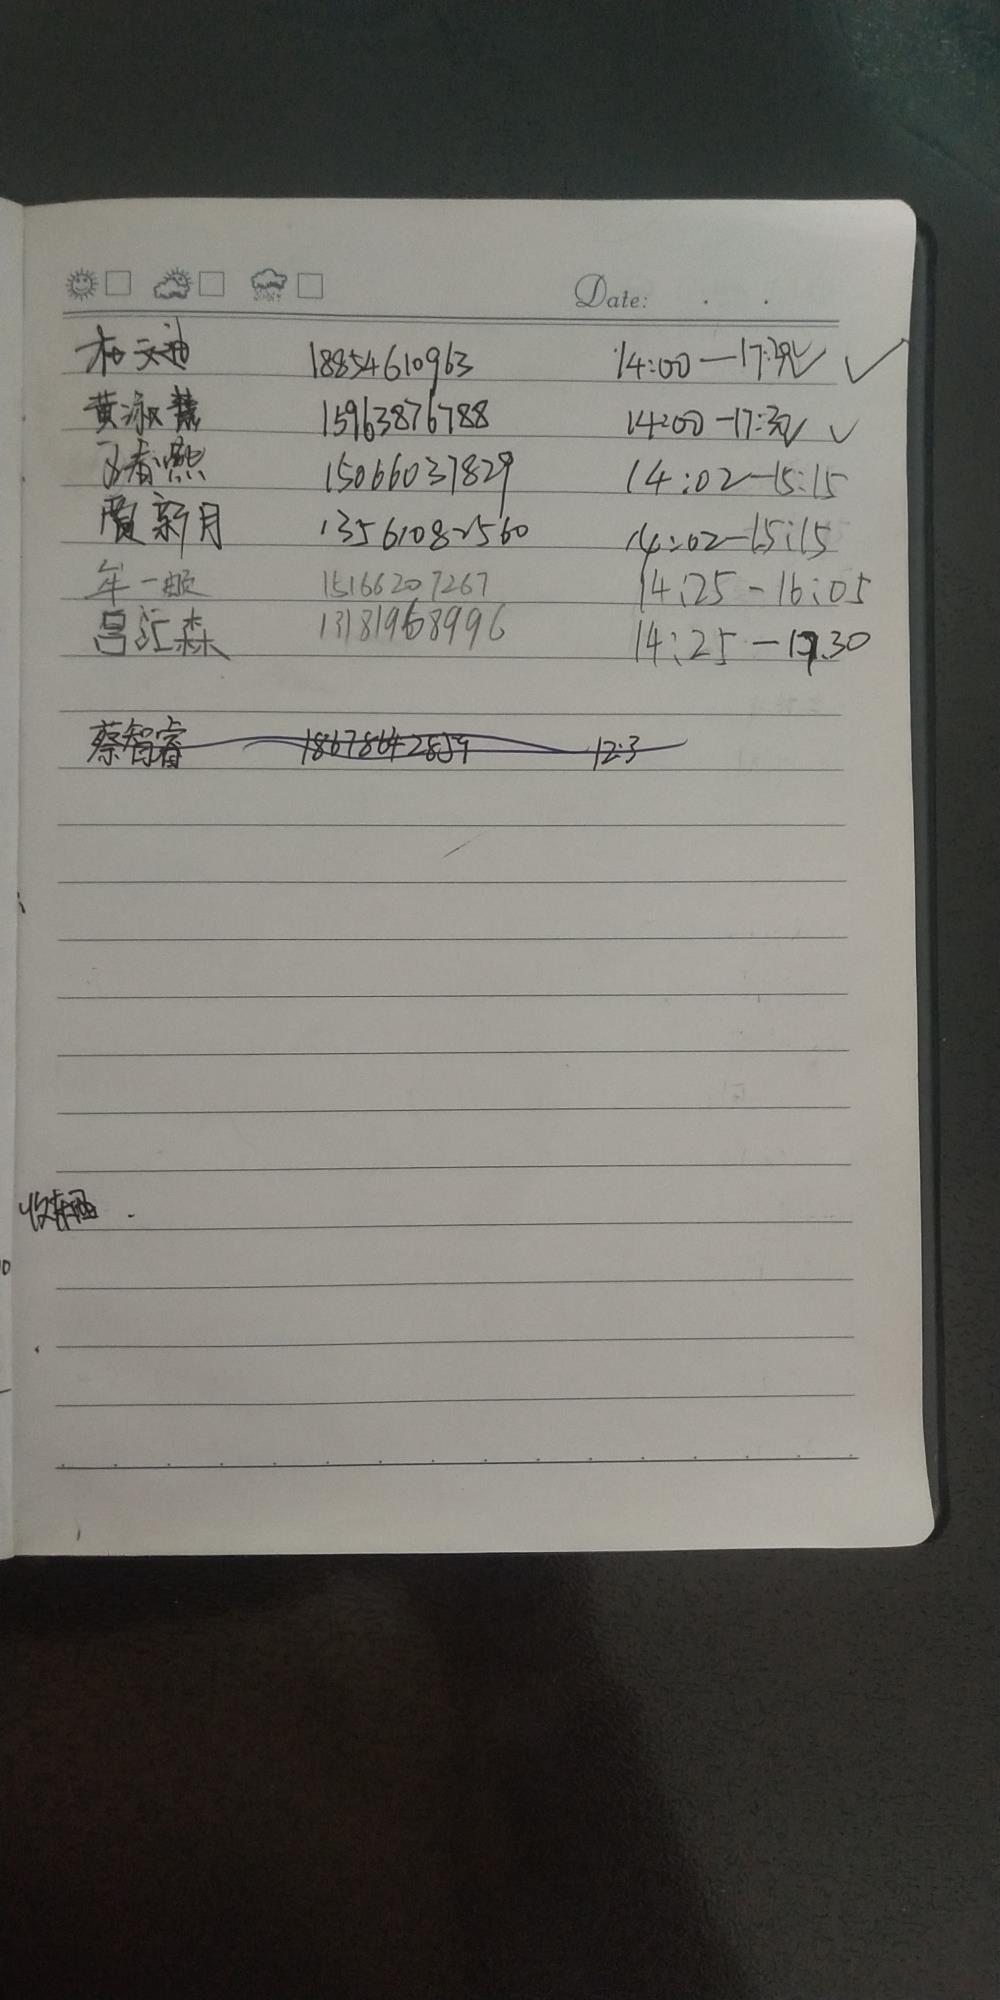 Date:
18854610963 14:00—17:30
黄 15963876788 14:00-17:30
春熙 15066037829 14:02-15:15
贾新月 13561082560 14:02-15:15
牟一 15166207267 14:25-16:05
吕汇森 13181968996 14:25-17:30
蔡智睿 12:3
收东西